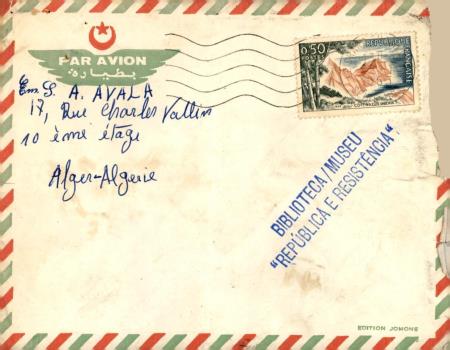 PAR AVION
بطيارة
A. AVALA
17, Rue Charles Vallin
10 ème étage
Alger-Algerie
0,50
POSTES
REPUBLIQUE FRANÇAISE
BIBLIOTECA/MUSEU
"REPÚBLICA E RESISTÊNCIA"
EDITION JOMONE